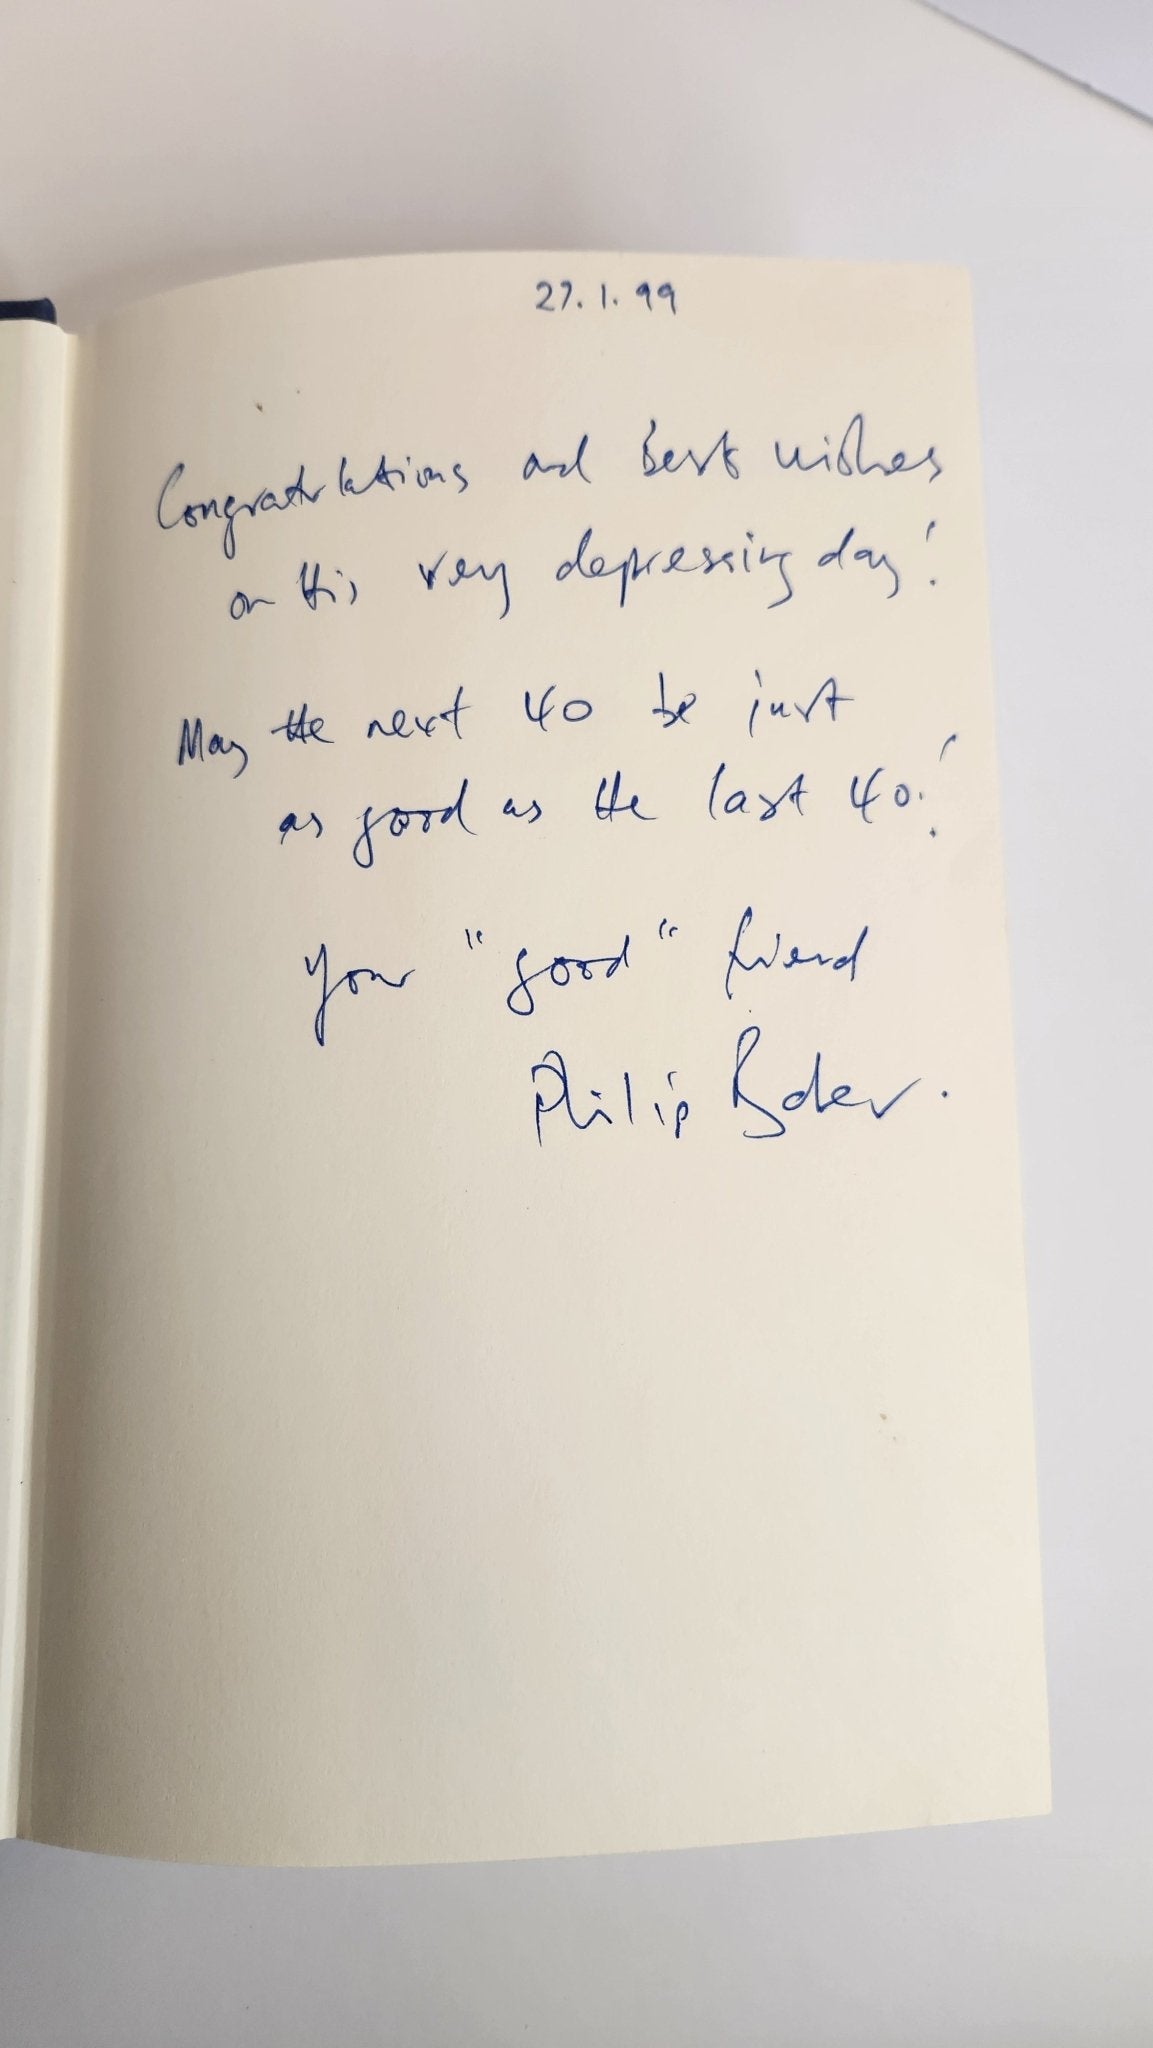 27.1.99
Congratulations and best wishes
on this very depressing day!
May the next 40 be just
as good as the last 40!
Your "good" friend
Philip